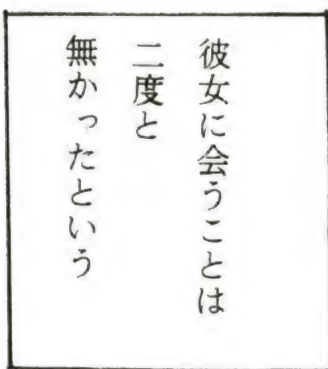 彼女に会うことは
二度と
無かったという